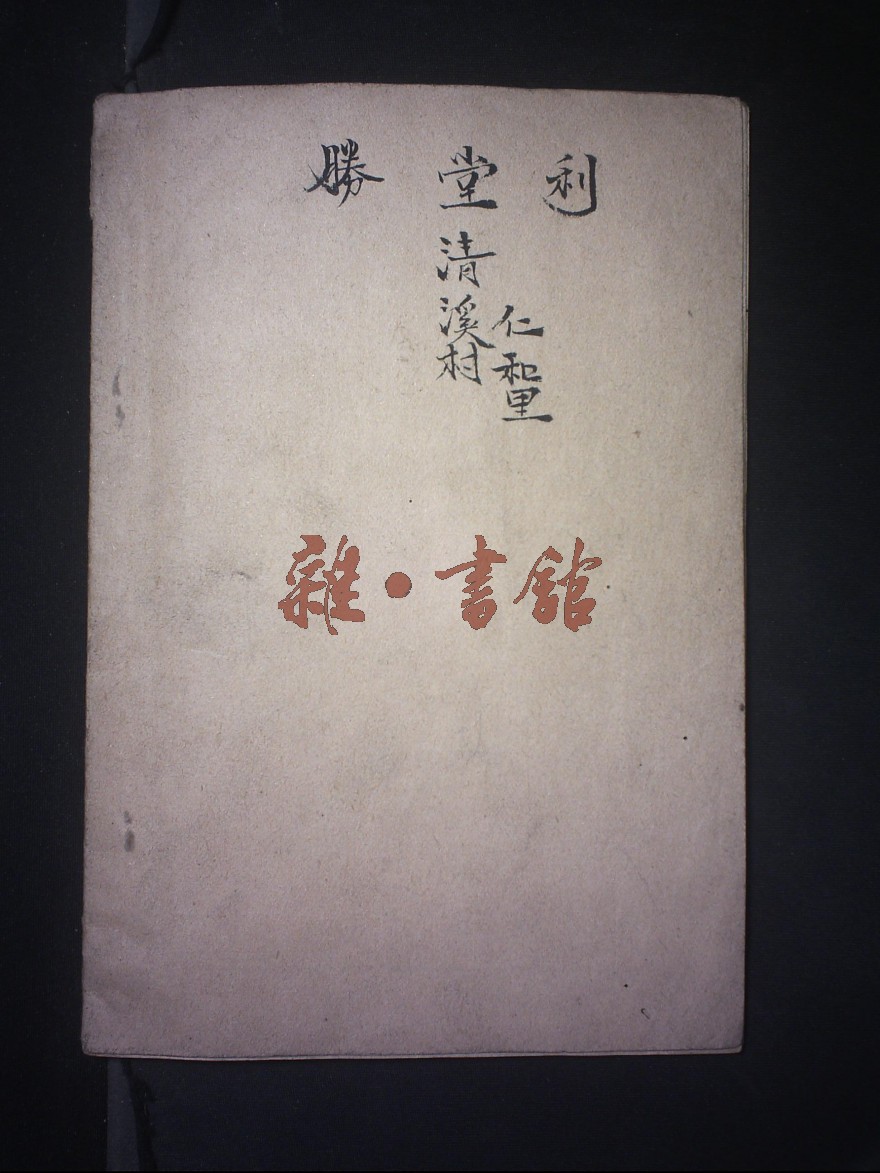 利堂勝
仁和里
清溪村
雜·書館